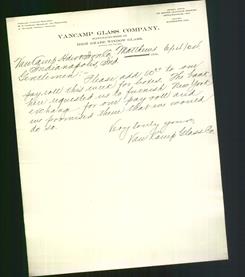 VANCAMP GLASS COMPANY.
HIGH GRADE WINDOW GLASS.
Matthews
Indianapolis, Ind
Gentlemen:- Please add 60.00 to our
pay roll this week for boxes. The bank
here requested us to furnish New York
exchang for our pay roll and
we promised them that we would
do so.
Very truly yours,
Van Camp Glass Co.